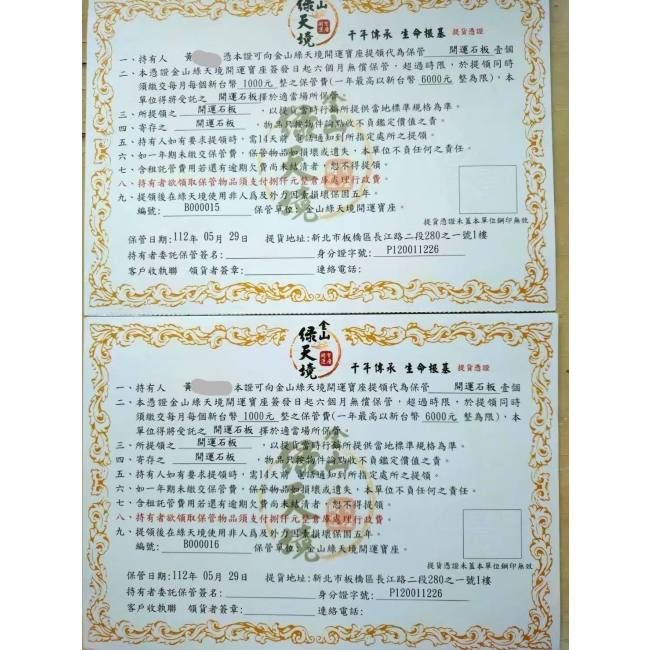 金山
綠天境
千年傳承 生命根基 提貨憑證
一、持有人 黃 憑本證可向金山綠天境開運寶座提領代為保管 開運石板 壹個
二、本憑證金山綠天境開運寶座簽發日起六個月無償保管,超過時限,於提領同時
須繳交每月每個新台幣 1000元 整之保管費(一年最高以新台幣 6000元 整為限),本
單位得將受託之 開運石板 擇於適當場所保管。
三、所提領之 開運石板 ,以提貨當時行編所提供當地標準規格為準。
四、寄存之 開運石板 ,物品只按物件論點收不負鑑定價值之責。
五、持有人如有要求提領時,需14天前 電話通知到所指定處所之提領。
六、如一年期未繳交保管費,保管物品如損壞或遺失,本單位不負任何之責任。
七、含租託管費用若還有逾期欠費尚未結清者,恕不得提領。
八、持有者欲領取保管物品須支付捌仟元整倉庫處理行政費。
九、提領後在綠天境使用非人為及外力因素損壞保固五年。
編號: B000015 保管單位:金山綠天境開運寶座。
提貨憑證未蓋本單位鋼印無效
保管日期:112年 05月 29日 提貨地址:新北市板橋區長江路二段280之一號1樓
持有者委託保管簽名: 身分證字號: P120011226
客戶收執聯 領貨者簽章: 連絡電話:
金山
綠天境
開運寶座
千年傳承 生命根基 提貨憑證
一、持有人 黃 本證可向金山綠天境開運寶座提領代為保管 開運石板 壹個
二、本憑證金山綠天境開運寶座簽發日起六個月無償保管,超過時限,於提領同時
須繳交每月每個新台幣 1000元 整之保管費(一年最高以新台幣 6000元 整為限),本
單位得將受託之 開運石板 擇於適當場所保管。
三、所提領之 開運石板 ,以提貨當時行編所提供當地標準規格為準。
四、寄存之 開運石板 ,物品只按物件論點收不負鑑定價值之責。
五、持有人如有要求提領時,需14天前 電話通知到所指定處所之提領。
六、如一年期未繳交保管費,保管物品如損壞或遺失,本單位不負任何之責任。
七、含租託管費用若還有逾期欠費尚未結清者,恕不得提領。
八、持有者欲領取保管物品須支付捌仟元整倉庫處理行政費。
九、提領後在綠天境使用非人為及外力因素損壞保固五年。
編號: B000016 保管單位:金山綠天境開運寶座。
提貨憑證未蓋本單位鋼印無效
保管日期:112年 05月 29日 提貨地址:新北市板橋區長江路二段280之一號1樓
持有者委託保管簽名: 身分證字號: P120011226
客戶收執聯 領貨者簽章: 連絡電話: